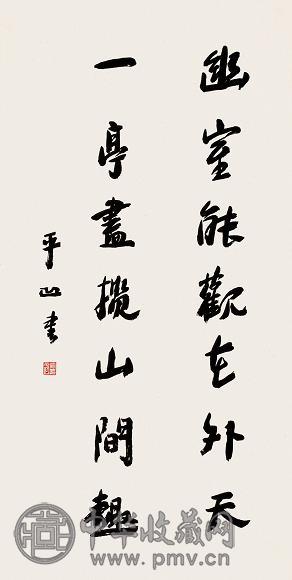 幽室能觀世外天
一亭盡攬山間趣
平書
中华收藏网
www.pmv.cn